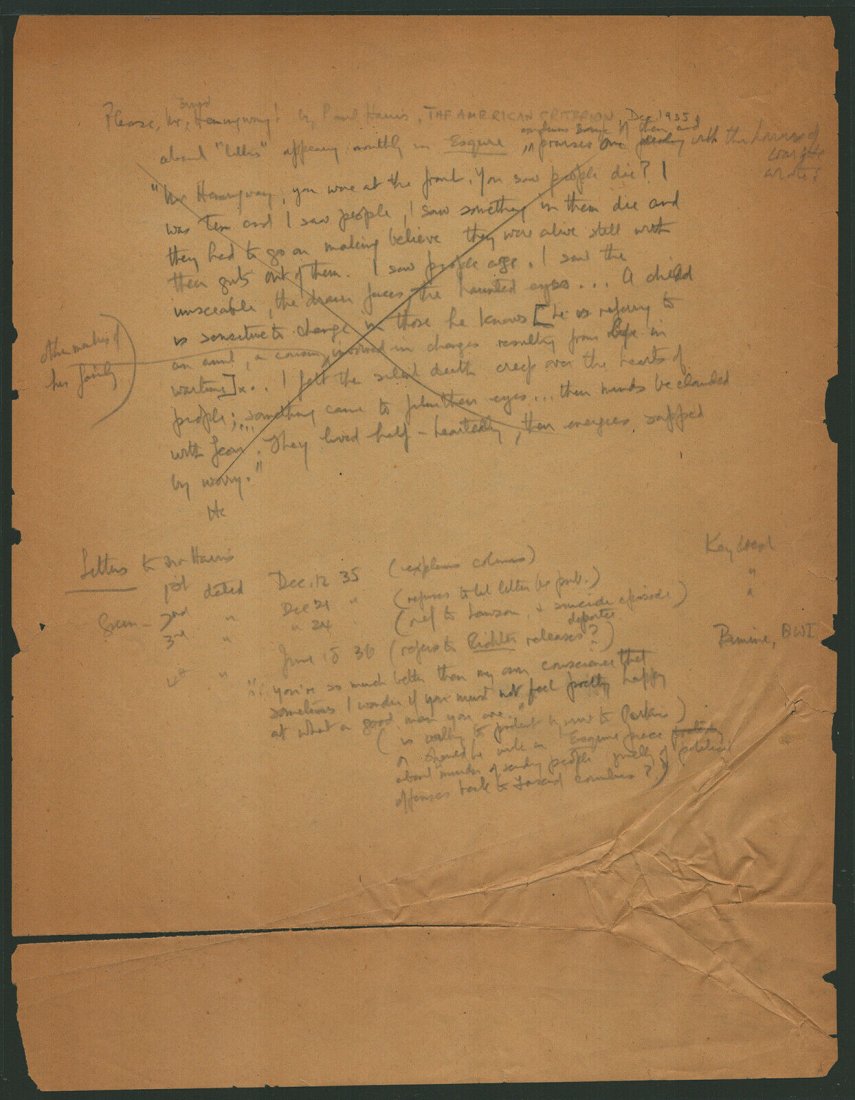 Please, Mr. Hemingway! by Paul Harris, THE AMERICAN CRITERION, Dec 1935
about "letters" appearing monthly in Esquire, praises one dealing with the horrors of
"Mr Hemingway, you were at the front. You saw people die? I
was ten and I saw people, I saw something in them die and
they had to go on making believe they were alive still with
their guts out of them. I saw people age. I saw the
unseeable, the drawn faces the haunted eyes... A child
is sensitive to change in those he knows [he is referring to
other members of
his family
an aunt, a cousin, involved in changes resulting from life in
wartime]... I felt the silent death creep over the hearts of
people;... something came to film their eyes... their minds be clouded
with fear. They lived half-heartedly, their energies sapped
by worry."
He
Letters to Harris
1st dated Dec. 12 35 (explains columns) Key West
2nd " Dec 21 " (refuses to let letter be pub.) "
3rd " " 24 (ref to Lawson & suicide episode) "
4th " June 15 36 (refers to releases?) Bimini, BWI
": you're so much better than my own conscience that
sometimes I wonder if you must not feel pretty happy
at what a good man you are."
(is willing to
or should he write an Esquire piece
about murder of sending people guilty of political
offenses back to fascist countries?)